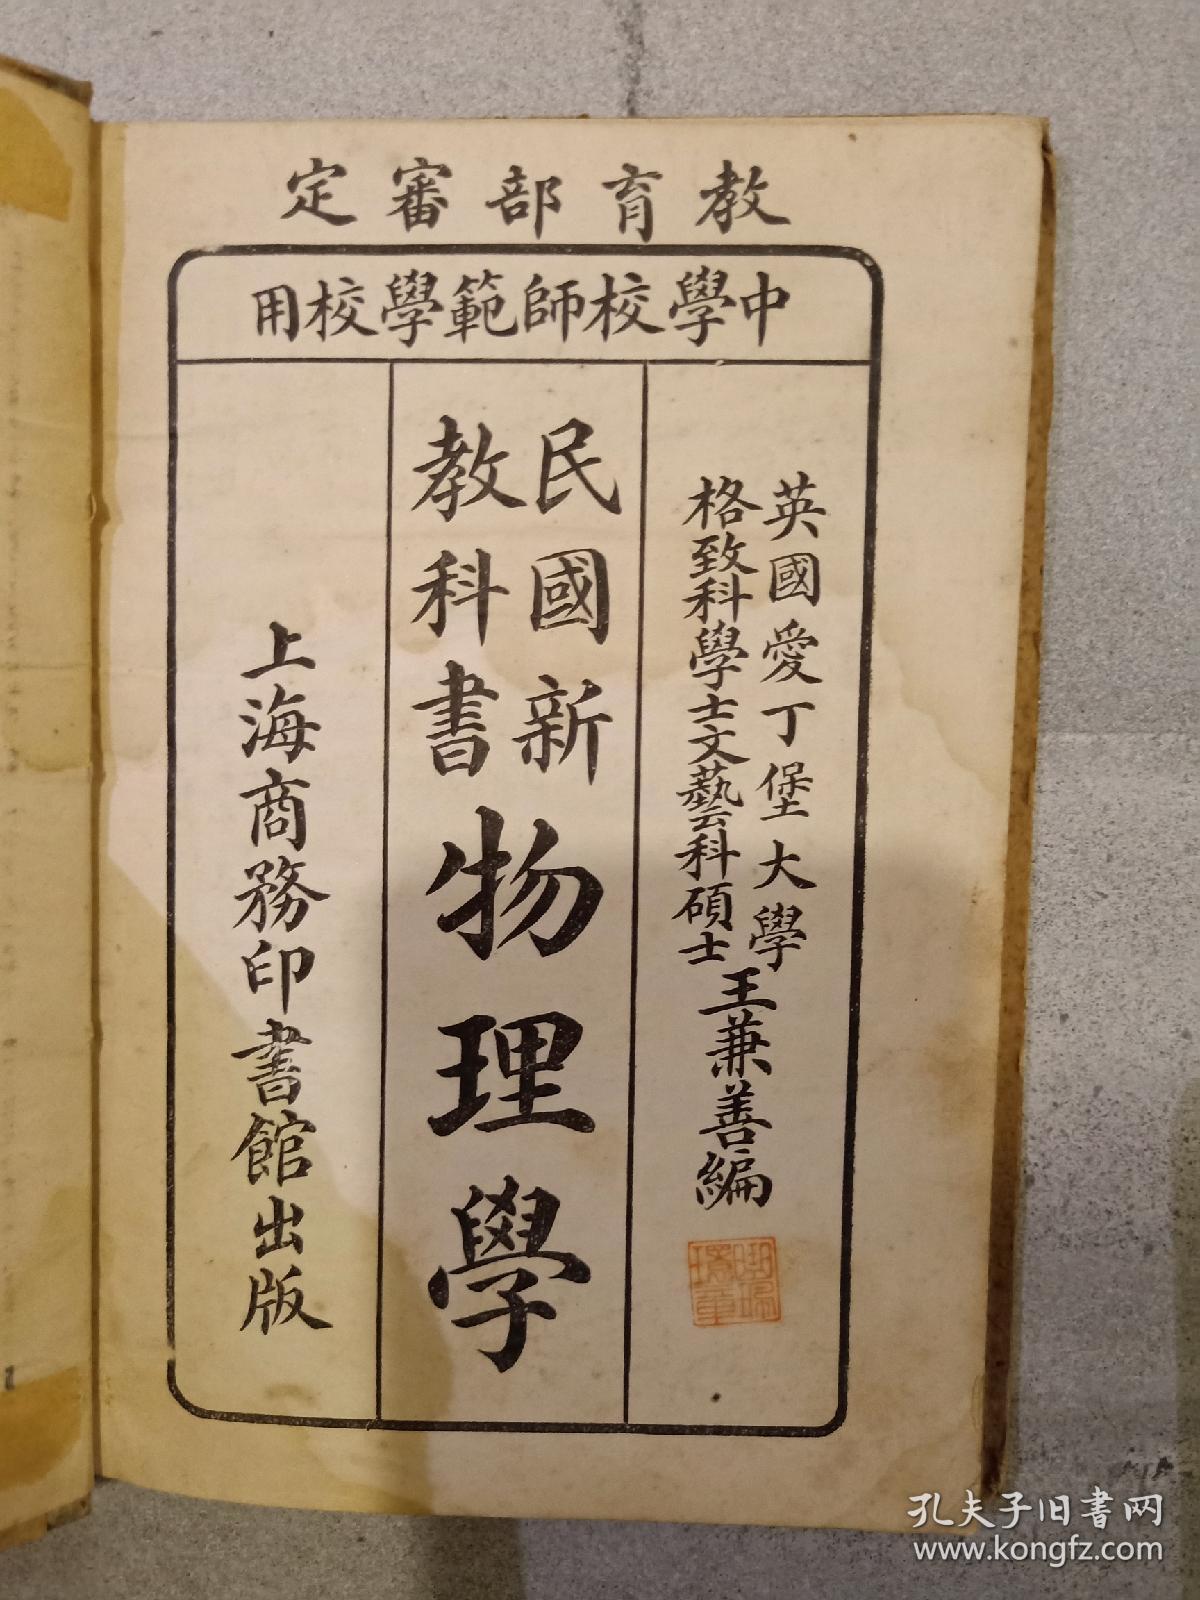 教育部審定
中學校師範學校用
英國愛丁堡大學
格致科學士文藝科碩士
王兼善編
民國新
教科書
物理學
上海商務印書館出版
孔夫子旧书网
www.kongfz.com